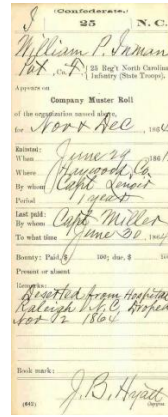 (Confederate.)
I 25 N. C.
William P. Inman
Pvt, Co. F, 25 Reg't North Carolina
Infantry (State Troops).
Appears on
Company Muster Roll
of the organization named above,
for Nov & Dec, 1864
Enlisted:
When June 29, 186
Where Haywood Co
By whom Capt Lenoir
Period 1 year
Last paid:
By whom Capt Miller
To what time June 30, 1864
Bounty: Paid, $ 100; due, $ 100
Present or absent
Remarks:
Deserted from Hospital
Raleigh N.C, Droped
Nov 12 1864
Book mark:
J. B. Hyatt
(642)